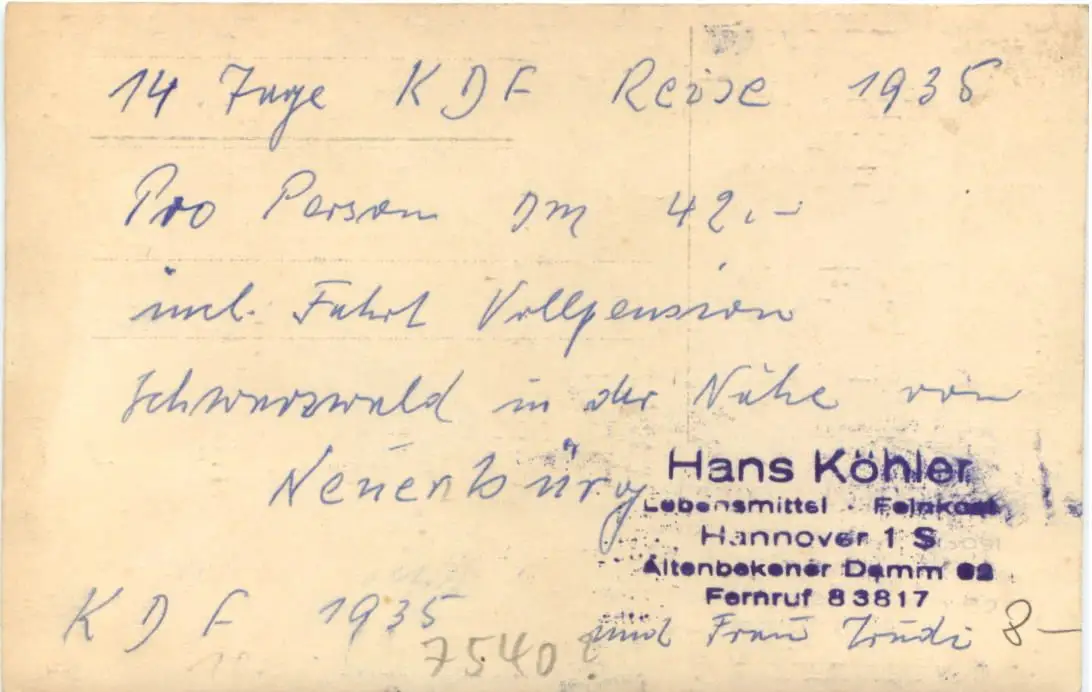 14 Tage KDF Reise 1935
Pro Person DM 42.-
incl. Fahrt Vollpension
Schwarzwald in der Nähe von
Neuenbürg
Hans Köhler
Lebensmittel · Feinkost
Hannover 1 S
Altenbekener Damm 82
Fernruf 83817
KDF 1935 und Frau Trudi 8-
7540